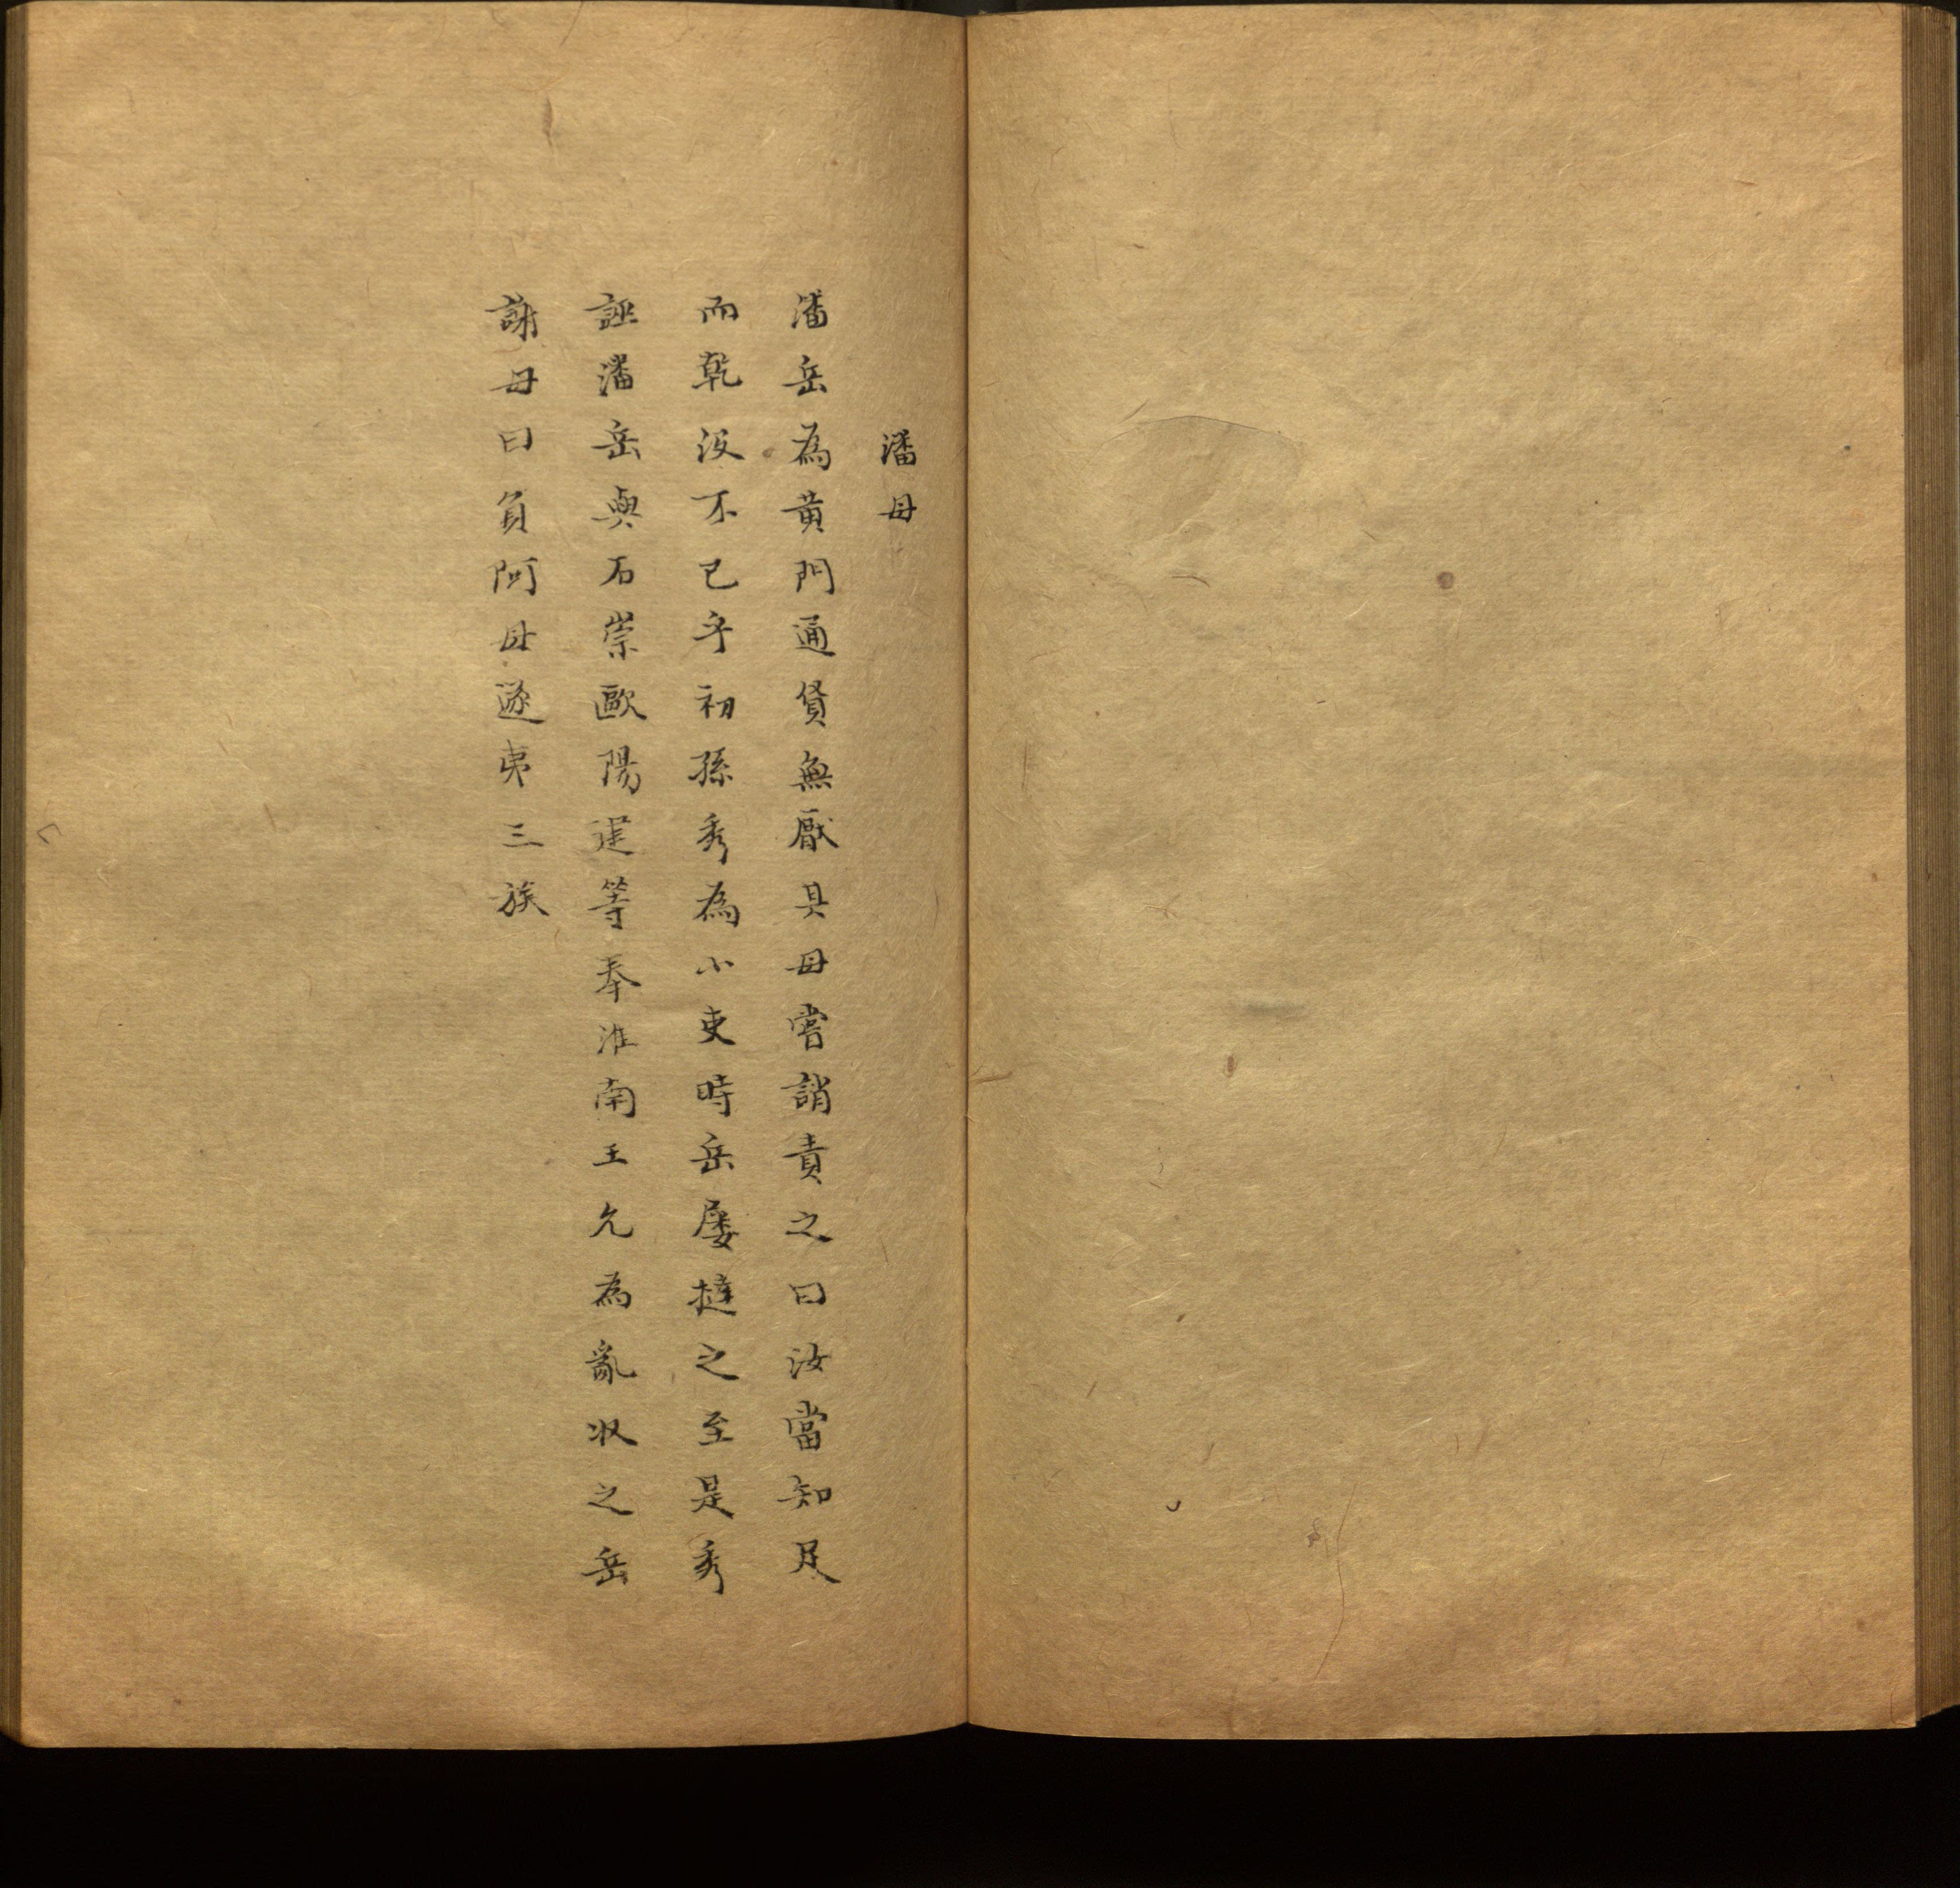 潘母
潘岳為黃門通貨無厭其母嘗誚責之曰汝當知足
而乾沒不已乎初孫秀為小吏時岳屢撻之至是秀
誣潘岳與石崇歐陽建等奉淮南王允為亂收之岳
謝母曰負阿母遂夷三族